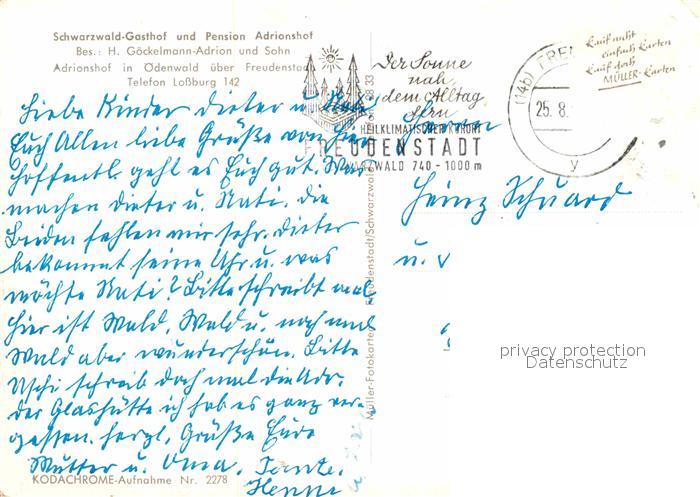 Schwarzwald-Gasthof und Pension Adrionshof
Bes.: H. Göckelmann-Adrion und Sohn
Adrionshof in Ödenwald über Freudenstadt
Telefon Loßburg 142
Der Sonne
nah,
dem Alltag
fern
HEILKLIMATISCHER KURORT
FREUDENSTADT
SCHWARZWALD 740 - 1000 m
(14b) FREU
25.8.
y
Kauf nicht
einfach Karten
Kauf doch
MÜLLER-Karten
Liebe Kinder Dieter u. Nati,
Euch Allen liebe Grüße von hier
hoffentl. geht es Euch gut. Was
machen Dieter u. Nati, die
Beiden fehlen mir sehr. Dieter
bekommt seine Uhr u. was
möchte Nati? Bitte schreibt mal
hier ist Wald, Wald u. noch mal
Wald aber wunderschön. Bitte
Uschi schreib doch mal die Adr.
der Glashütte ich hab es ganz ver-
gessen. Herzl. Grüße Eure
Mutter u. Oma, Tante.
Henni
Herrn
Heinz
u.
KODACHROME-Aufnahme Nr. 2278
Müller-Fotokarten Freudenstadt/Schwarzwald
privacy protection
Datenschutz